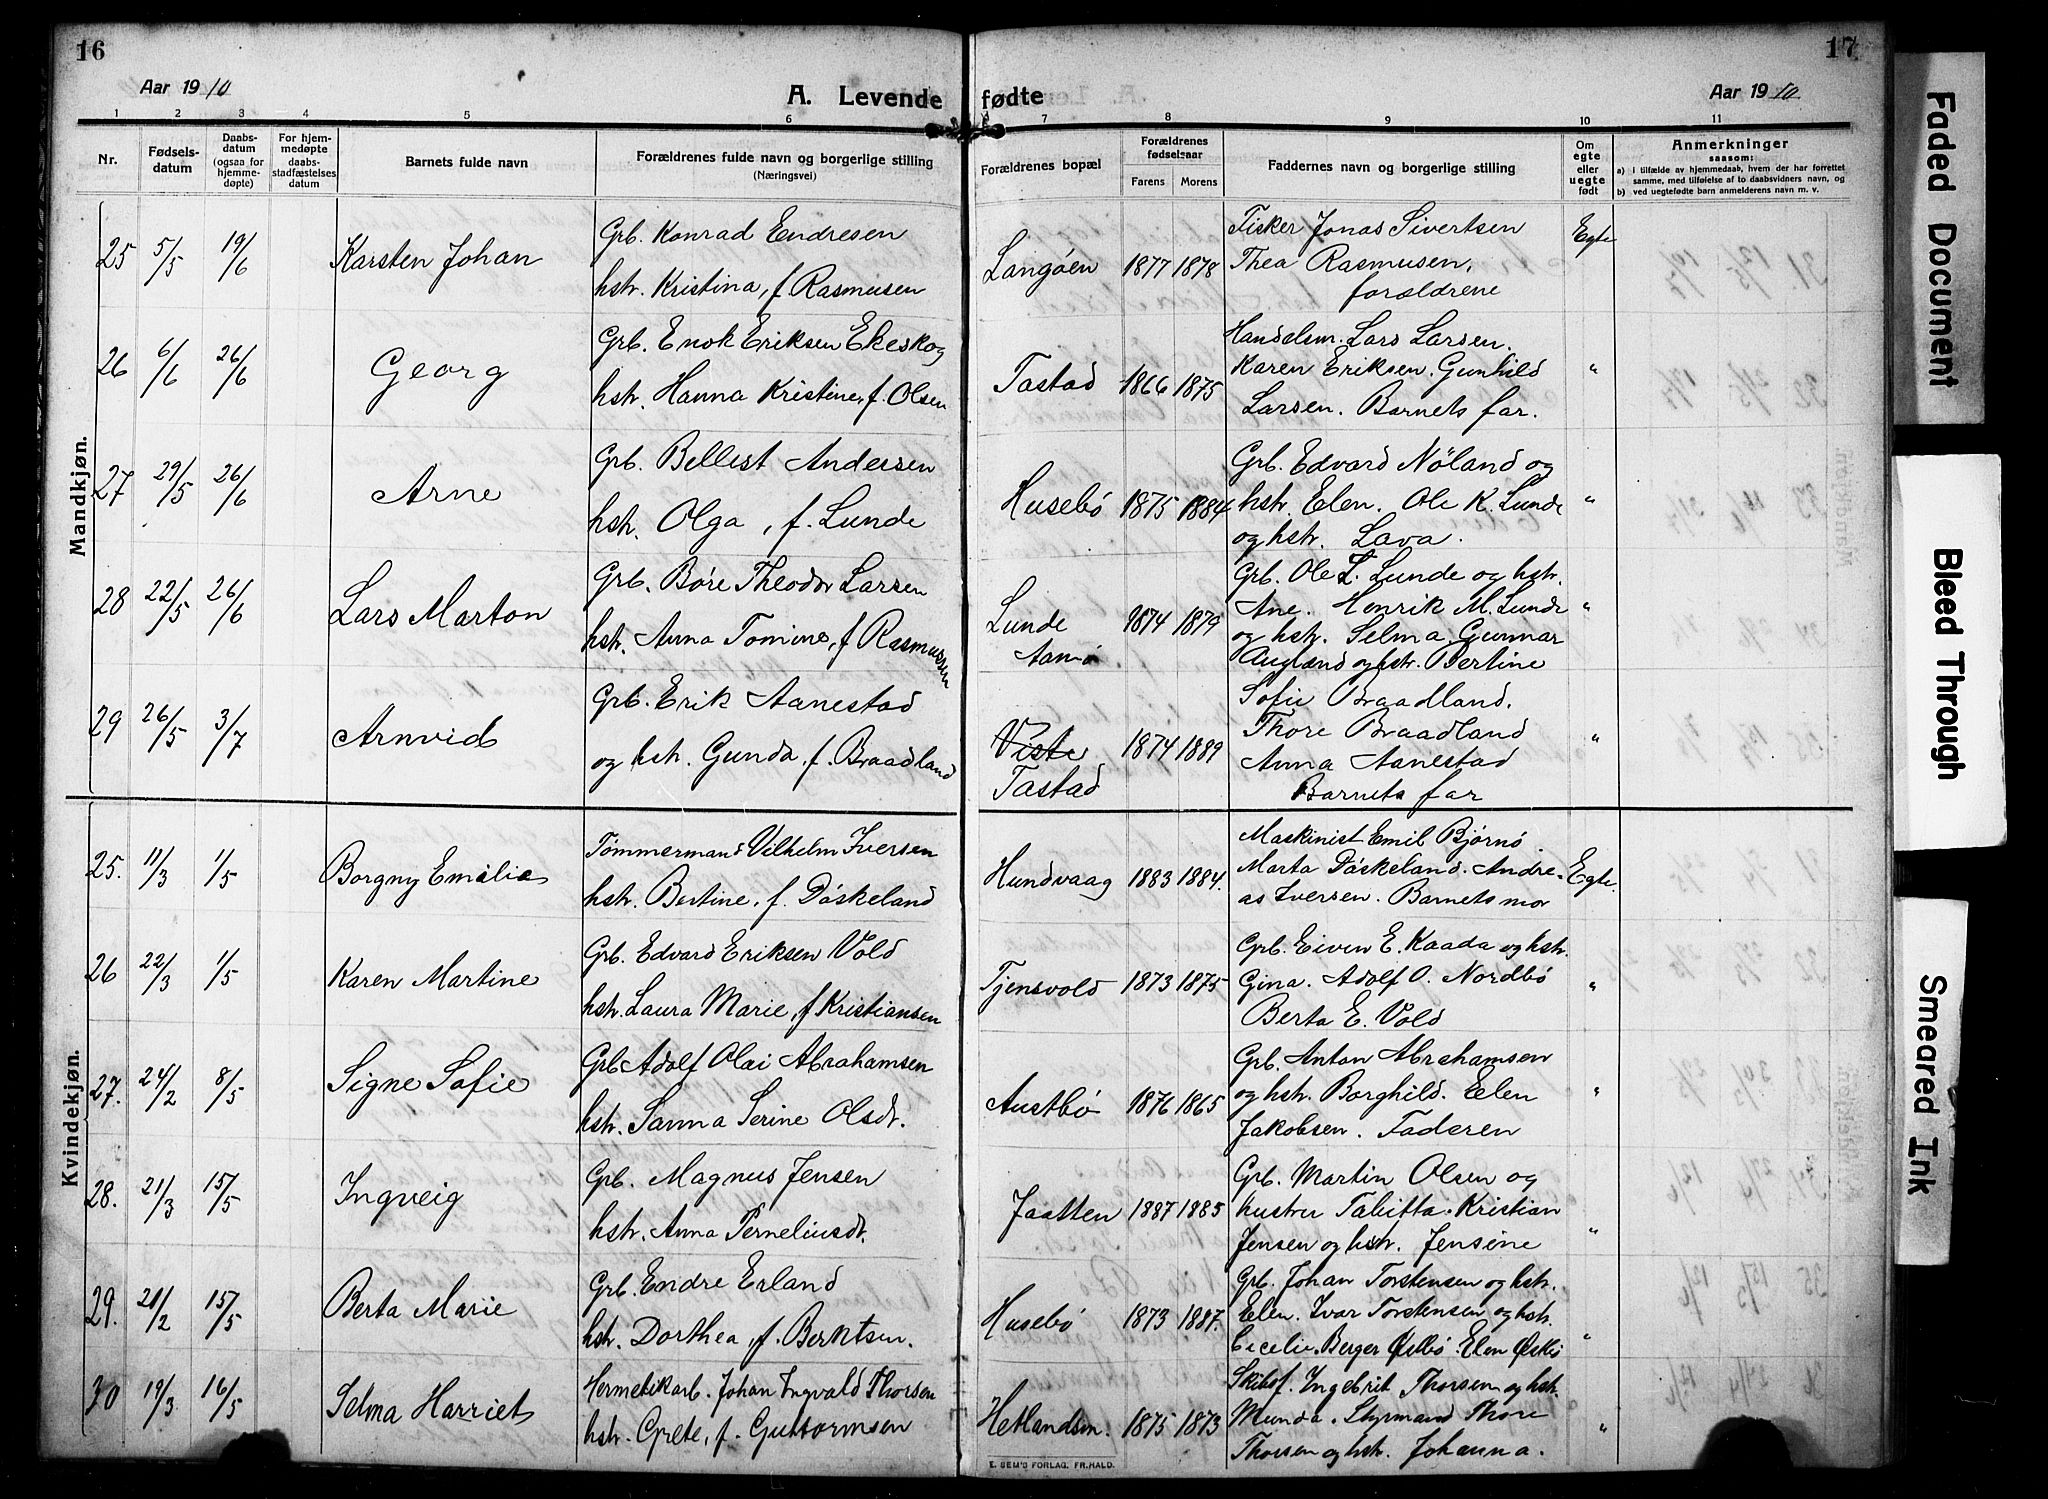 16
17
Aar 1910
A. Levende fødte
Aar 1910
1 2 3 4 5 6 7 8 9 10 11
Nr.
Fødsels-
datum
Daabs-
datum
(ogsaa for
hjemme-
døpte)
For hjem-
medøpte
daabs-
stadfæstelses
datum
Barnets fulde navn
Forældrenes fulde navn og borgerlige stilling
(Næringsvei)
Forældrenes bopæl
Forældrenes
fødselsaar
Farens Morens
Faddernes navn og borgerlige stilling
Om
egte
eller
uegte
født
Anmerkninger
saasom:
a) i tilfælde av hjemmedaab, hvem der har forrettet
samme, med tilføielse af to daabsvidners navn, og
b) ved uegtefødte barn anmelderens navn m. v.
Mandkjøn.
25 5/5 19/6 Karsten Johan
Grb. Konrad Endresen
hstr. Kristina, f. Rasmusen
Langøen 1877 1878
Fisker Jonas Sivertsen
Thea Rasmusen,
forældrene
Egte
26 6/6 26/6 Georg
Grb. Enok Eriksen Ekeskog
hstr. Hanna Kristine, f. Olsen
Tastad 1866 1875
Handelsm. Lars Larsen.
Karen Eriksen. Gunhild
Larsen. Barnets far.
"
27 29/5 26/6 Arne
Grb. Bellest Andersen
hstr. Olga, f. Lunde
Husebø 1875 1884
Grb. Edvard Nøland og
hstr. Elen. Ole K. Lunde
og hstr. Lava.
"
28 22/5 26/6 Lars Marton
Grb. Børe Theodor Larsen
hstr. Anna Tomine, f. Rasmussen
Lunde
Aamø
1874 1879
Grb. Ole L. Lunde og hstr.
Ane. Henrik M. Lunde
og hstr. Selma. Gunnar
Augland og hstr. Bertine
"
29 26/5 3/7 Arnvid
Grb. Erik Aanestad
og hstr. Gunda, f. Braadland
Viste
Tastad
1874 1889
Sofie Braadland.
Thore Braadland
Anna Aanestad
Barnets far
"
Kvindekjøn.
25. 11/3 1/5 Borgny Emilie
Tømmermand Vilhelm Iversen
hstr. Bertine, f. Døskeland
Hundvaag 1883 1884.
Maskinist Emil Bjørnø.
Marta Døskeland. Andre-
as Iversen. Barnets mor
Egte.
26 22/3 1/5 Karen Martine
Grb. Edvard Eriksen Vold
hstr. Laura Marie, f Kristiansen
Tjensvold 1873 1875
Grb. Eiven E. Kaada og hstr.
Gina. Adolf O. Nordbø
Berta E. Vold
"
27. 24/2 8/5 Signe Sofie
Grb Adolf Olai Abrahamsen
hstr. Sanna Serine Olsdt.
Austbø 1876 1865
Grb. Anton Abrahamsen
og hstr. Borghild. Elen
Jakobsen. Faderen
"
28. 21/3 15/5 Ingveig
Grb. Magnus Jensen
hstr. Anna Perneliusdt.
Jaatten 1887 1885
Grb. Martin Olsen og
hustru Tabitta. Kristian
Jensen og hstr. Jensine
"
29. 21/2 15/5 Berta Marie
Grb. Endre Erland
hstr. Dorthea, f. Berntsen.
Husebø 1873 1887.
Grb. Johan Torstensen og hstr.
Elen. Ivar Torstensen og hstr.
Cecelie. Berger Østbø. Elen Østbø
"
30 19/3 16/5 Selma Harriet
Hermetikarb. Johan Ingvald Thorsen
hstr. Grete, f. Guttormsen
Hetlandsm. 1875 1873
Skibsf. Ingebrit Thorsen og hstr.
Munda. Styrmand Thore
Thorsen og hstr. Johanna.
"
E. SEM'S FORLAG. FR.HALD.
Faded Document
Bleed Through
Smeared Ink